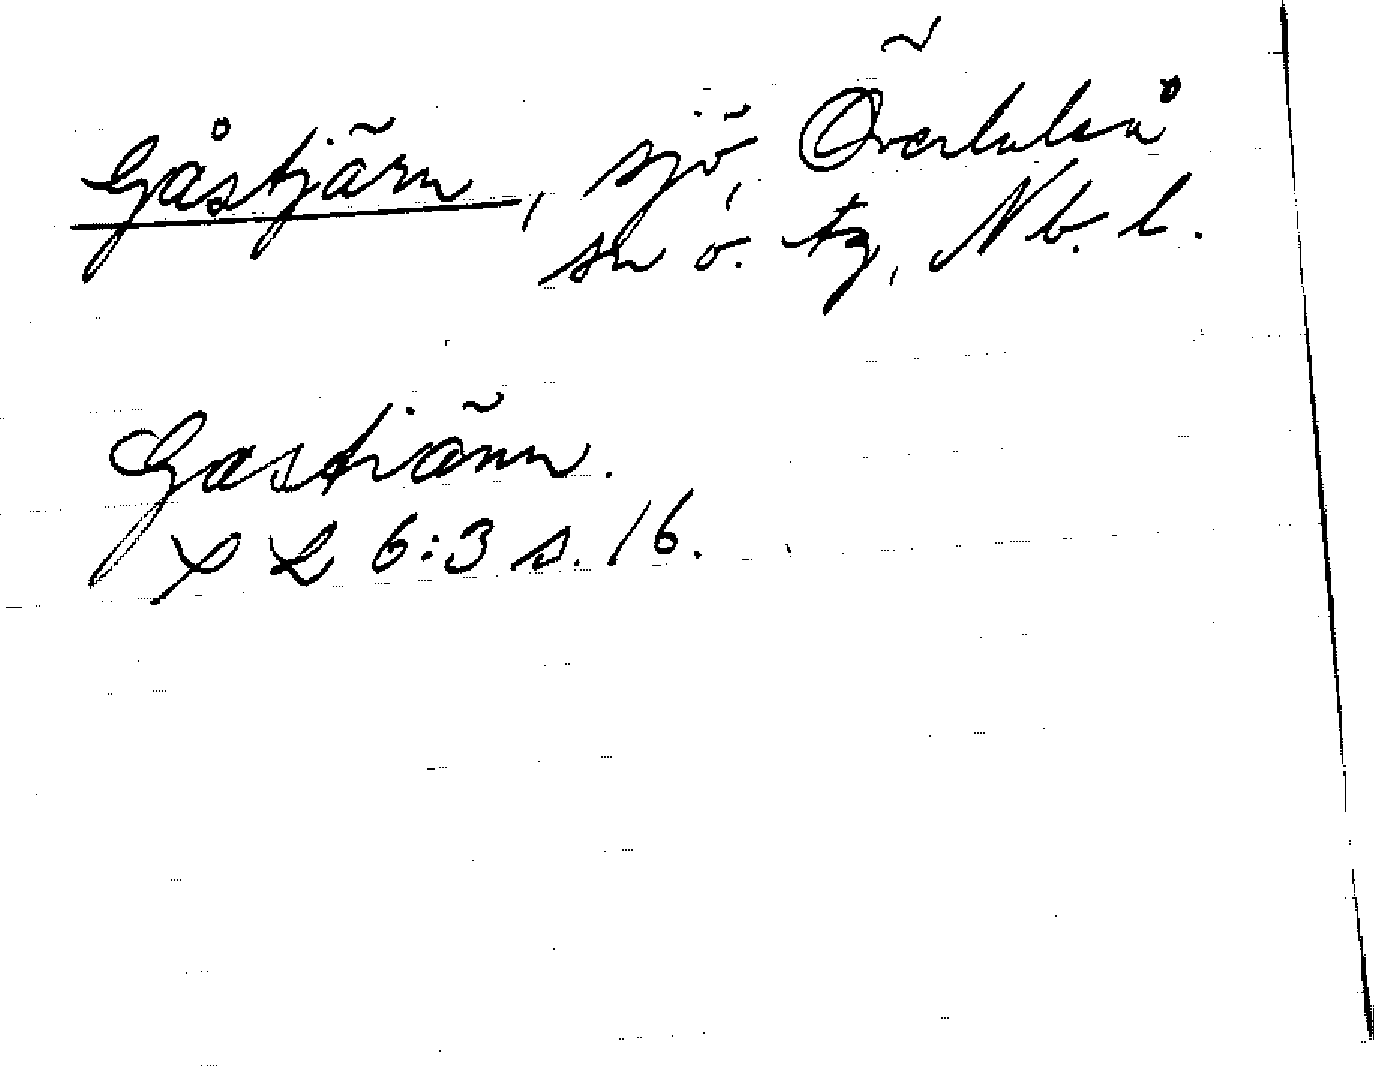 Gåstjärn, sjö, Överluleå
sn o. tg, Nb. l.
Gastiänn.
X L 6:3 s. 16.